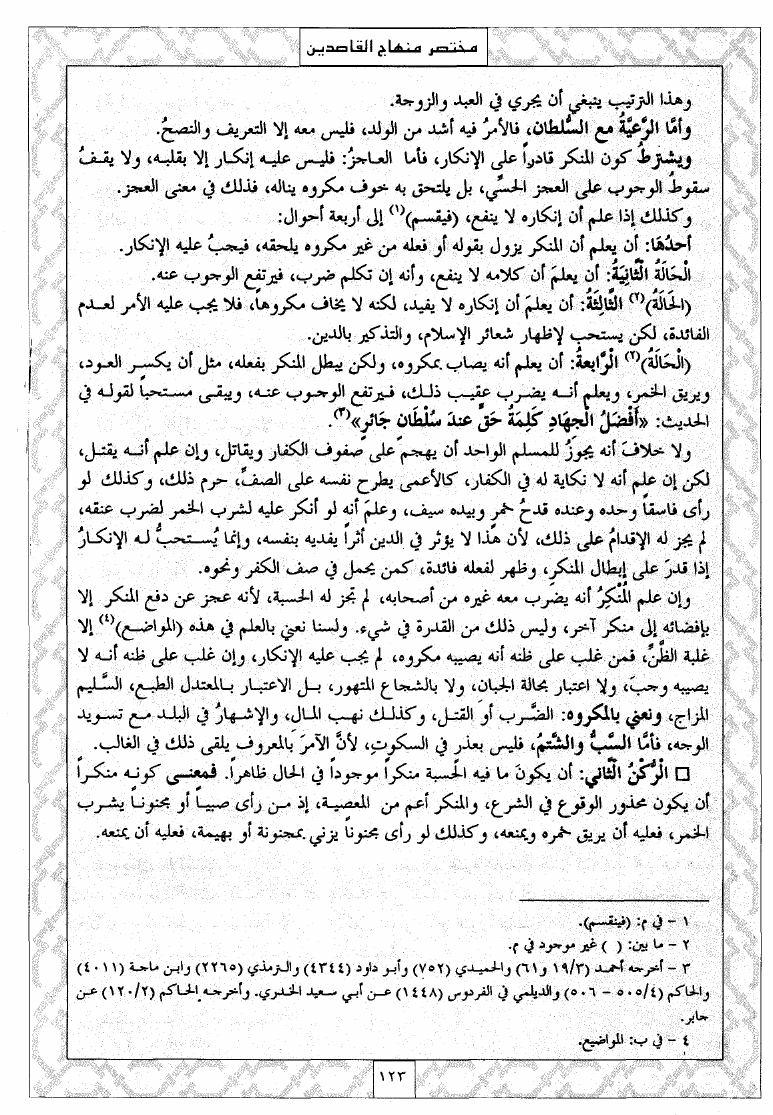 مختصر منهاج القاصدين
وهذا الترتيب ينبغي أن يجري في العبد والزوجة.
وأمَّا الرَّعيَّةُ مع السُّلطان، فالأمرُ فيه أشد من الولد، فليس معه إلا التعريف والنصحُ.
ويشترطُ كون المنكر قادراً على الإنكار، فأما العاجزُ: فليس عليه إنكار إلا بقلبه، ولا يقفُ
سقوطُ الوجوب على العجز الحسِّي، بل يلتحق به خوف مكروه يناله، فذلك في معنى العجز.
وكذلك إذا علم أن إنكاره لا ينفع، (فيقسم)(١) إلى أربعة أحوال:
أحدُهَا: أن يعلم أن المنكر يزول بقوله أو فعله من غير مكروه يلحقه، فيجبُ عليه الإنكار.
الْحَالَةُ الْثَّانِيَةُ: أن يعلمَ أن كلامه لا ينفع، وأنه إن تكلم ضرب، فيرتفع الوجوب عنه.
(الحَالَةُ)(٢) الثَّالِثَةُ: أن يعلمَ أن إنكاره لا يفيد، لكنه لا يخاف مكروهاً، فلا يجب عليه الأمر لعدم
الفائدة، لكن يستحب لإظهار شعائر الإسلام، والتذكير بالدين.
(الْحَالَةُ)(٢) الْرَّابعةُ: أن يعلم أنه يصاب بمكروه، ولكن يبطل المنكر بفعله، مثل أن يكسر العود،
ويريق الخمر، ويعلم أنه يضرب عقيب ذلك، فيرتفع الوجوب عنه، ويبقى مستحباً لقوله في
الحديث: «أَفْضَلُ الْجِهَادِ كَلِمَةُ حَقٍّ عندَ سُلْطَان جَائرٍ»(٣).
ولا خلافَ أنه يجوزُ للمسلم الواحد أن يهجم على صفوف الكفار ويقاتل، وإن علم أنه يقتل،
لكن إن علم أنه لا نكاية له في الكفار، كالأعمى يطرح نفسه على الصفِّ، حرم ذلك، وكذلك لو
رأى فاسقاً وحده وعنده قدحُ خمرٍ وبيده سيف، وعلمَ أنه لو أنكر عليه لشرب الخمر لضرب عنقه،
لم يجز له الإقدامُ على ذلك، لأن هذا لا يؤثر في الدين أثراً يفديه بنفسه، وإنما يُستحبُّ له الإنكارُ
إذا قدرَ على إبطال المنكرِ، وظهر لفعله فائدة، كمن يحمل في صف الكفر ونحوه.
وإن علم الْمُنْكِرُ أنه يضرب معه غيره من أصحابه، لم تجز له الحسبة، لأنه عجز عن دفع المنكر إلا
بإفضائه إلى منكر آخر، وليس ذلك من القدرة في شيء. ولسنا نعني بالعلم في هذه (المواضع)(٤) إلا
غلبة الظنِّ، فمن غلب على ظنه أنه يصيبه مكروه، لم يجب عليه الإنكار، وإن غلب على ظنه أنه لا
يصيبه وجبَ، ولا اعتبار بحالة الجبان، ولا بالشجاع المتهور، بل الاعتبار بالمعتدل الطبع، السَّليم
المزاج، ونعني بالمكروه: الضَّرب أو القتل، وكذلك نهب المال، والإشهارُ في البلد مع تسويد
الوجه، فأمَّا السَّبُّ والشَّتمُ، فليس بعذر في السكوتِ، لأنَّ الآمرَ بالمعروف يلقى ذلك في الغالب.
□ الْرُّكْنُ الْثَّاني: أن يكونَ ما فيه الحسبة منكراً موجوداً في الحال ظاهراً. فمعنى كونه منكراً
أن يكون محذور الوقوع في الشرع، والمنكر أعم من المعصية، إذ من رأى صبياً أو مجنوناً يشرب
الخمر، فعليه أن يريق خمره ويمنعه، وكذلك لو رأى مجنوناً يزني بمجنونة أو بهيمة، فعليه أن يمنعه.
١ - في م: (فينقسم).
٢ - ما بين: ( ) غير موجود في م.
٣ - أخرجه أحمد (١٩/٣ و٦١) والحميدي (٧٥٢) وأبو داود (٤٣٤٤) والترمذي (٢٢٦٥) وابن ماجة (٤٠١١)
والحاكم (٥٠٥/٤ - ٥٠٦) والديلمي في الفردوس (١٤٤٨) عن أبي سعيد الخدري. وأخرجه الحاكم (١٢٠/٢) عن
جابر.
٤ - في ب: المواضيع.
١٢٣